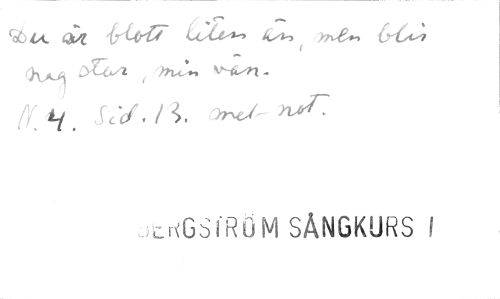 Du är blott liten än, men blir
nog stor, min vän.
N. 4. Sid. 13. mel-not.
BERGSTRÖM SÅNGKURS I